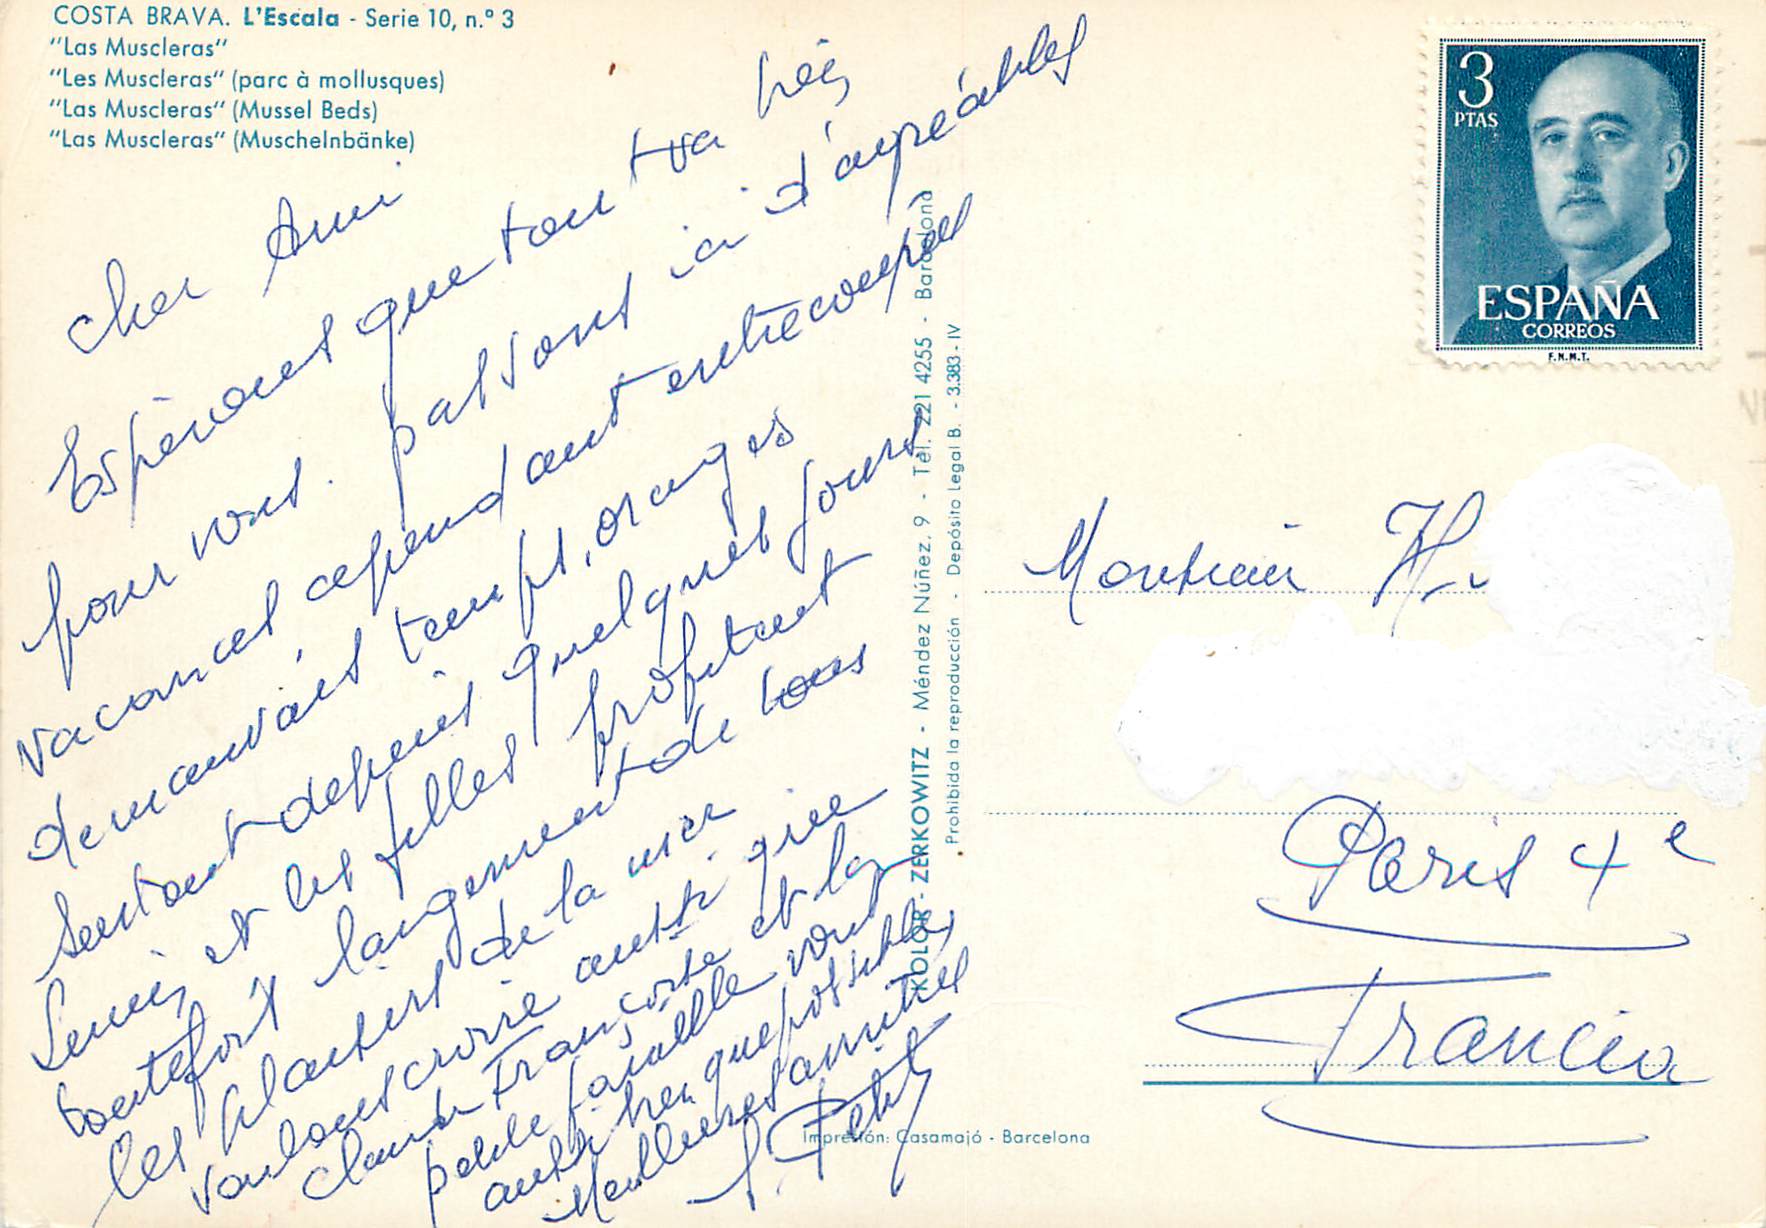 COSTA BRAVA. L'Escala - Serie 10, n.º 3
"Las Muscleras"
"Les Muscleras" (parc à mollusques)
"Las Muscleras" (Mussel Beds)
"Las Muscleras" (Muschelnbänke)
Cher Ami
Espérons que tout va bien
pour vous. passons ici d'agréables
vacances cependant entrecoupées
de mauvais temps, orages
surtout depuis quelques jours
et les filles profitent
toutefois largement de tous
les plaisirs de la mer
voulons croire aussi que
Françoise et la
petite famille vont
aussi bien que possible
Meilleures amitiés
Petit
KOLOR - ZERKOWITZ - Méndez Núñez, 9 - Tel. 221 4255 - Barcelona
Prohibida la reproducción - Depósito Legal B. - 3.383 - IV
Impresión: Casamajó - Barcelona
3
PTAS
ESPAÑA
CORREOS
F.N.M.T.
Monsieur H.
Paris 4e
Francia